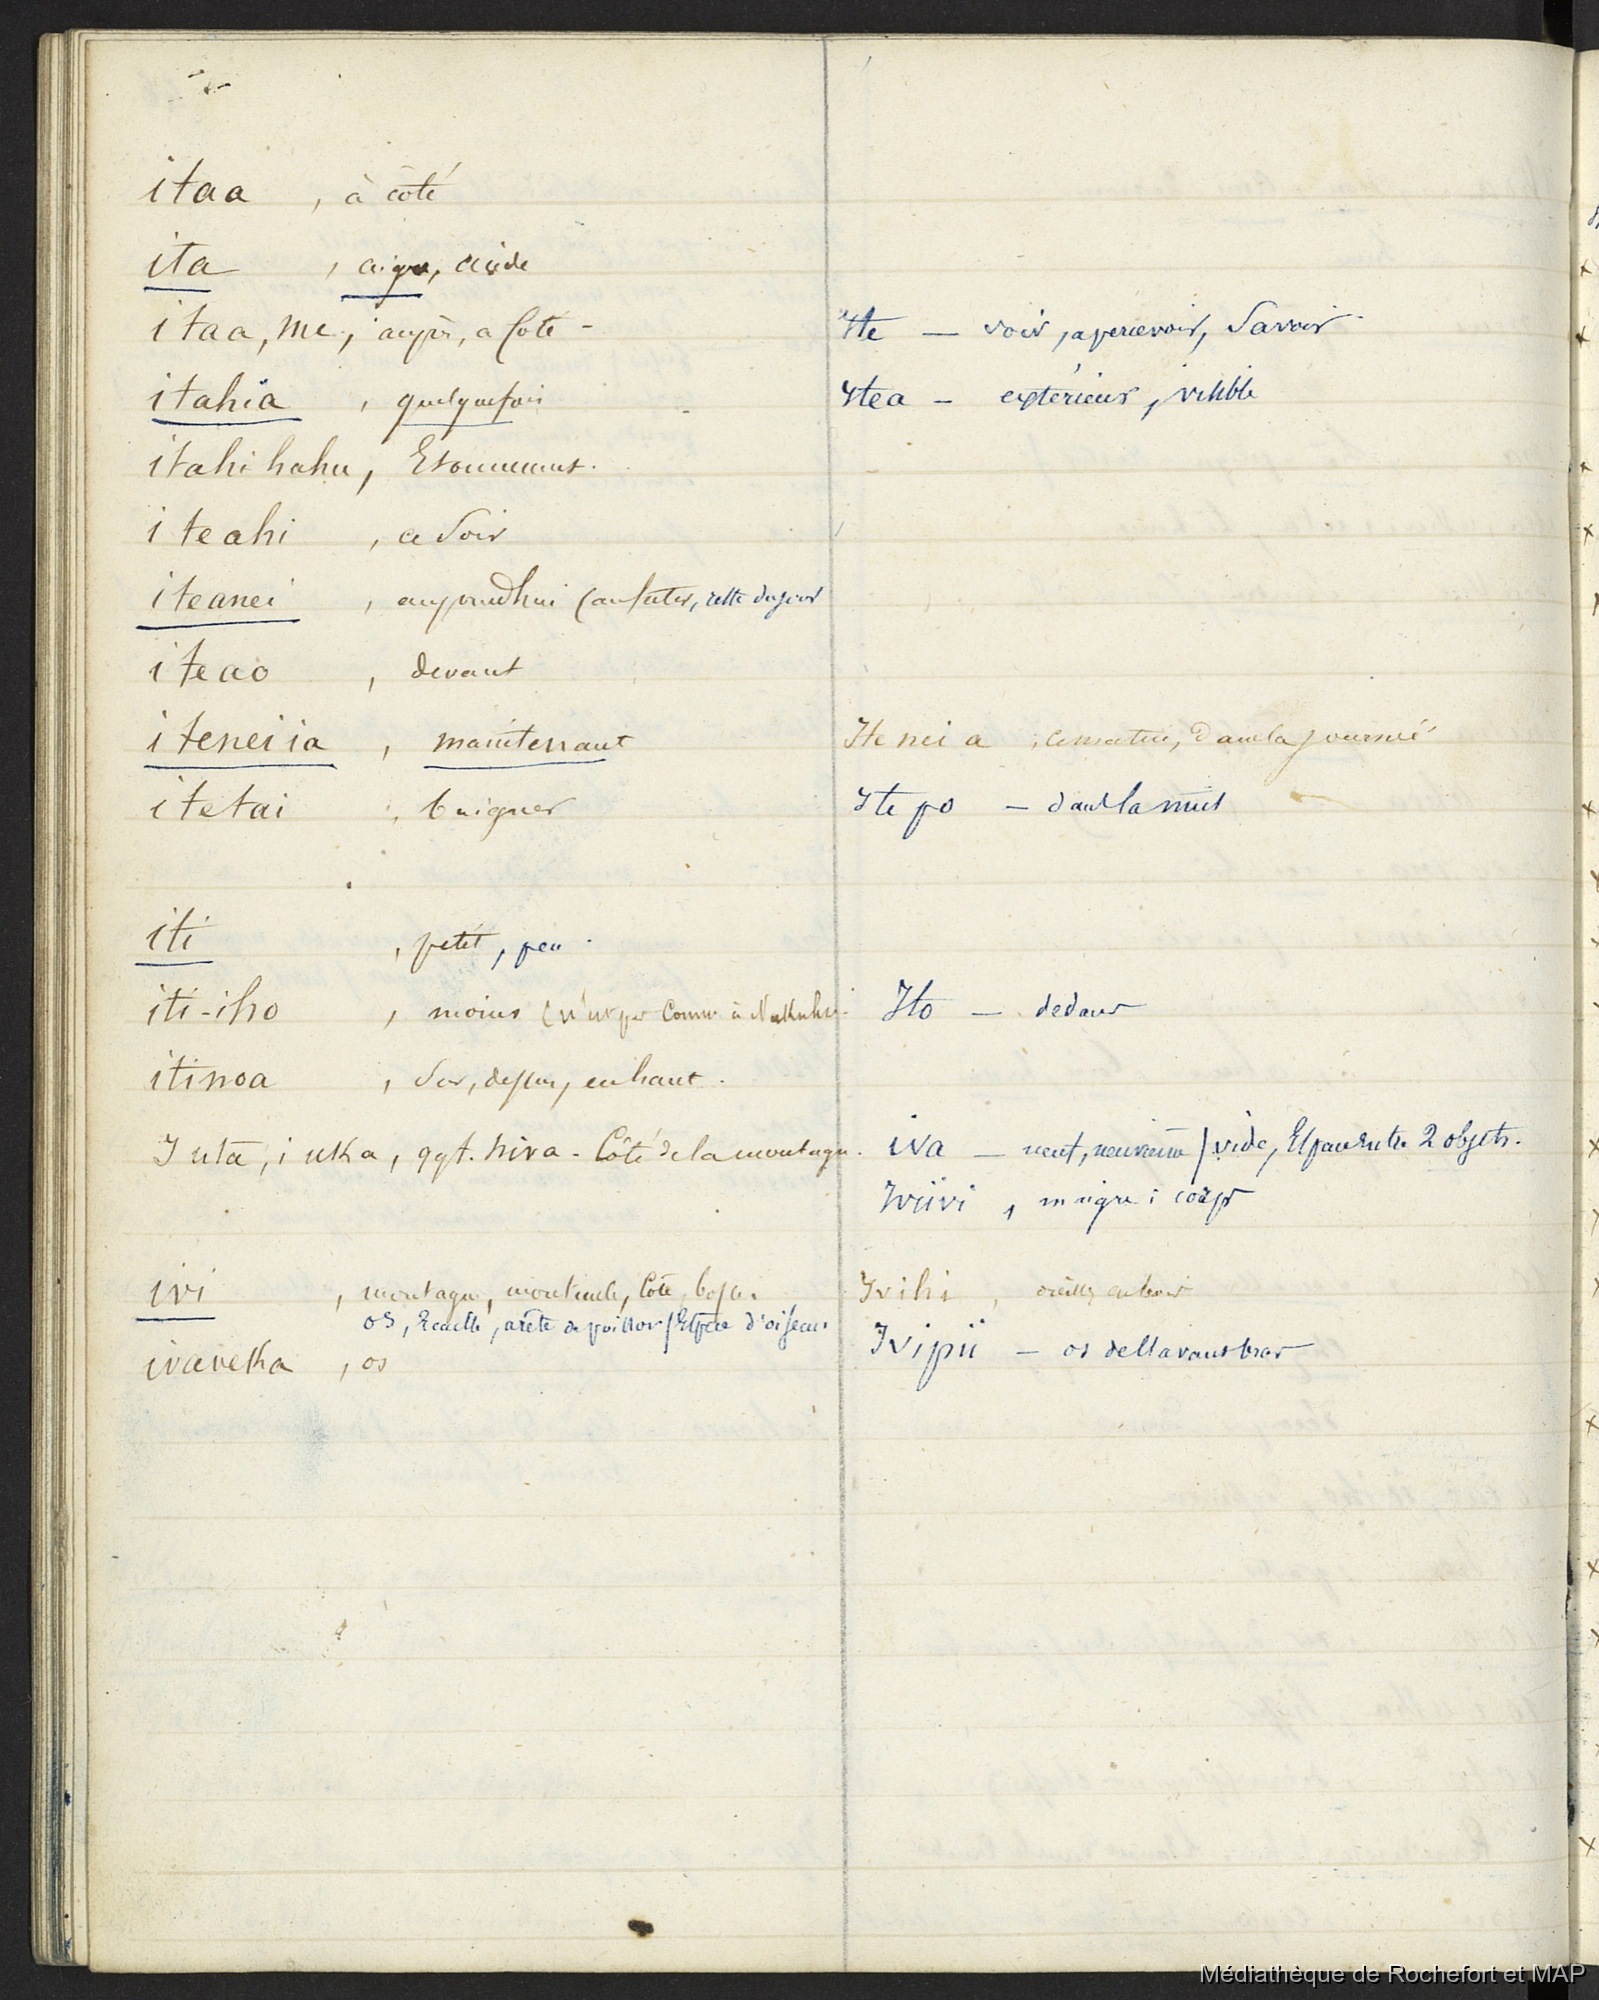 itaa , à côté
ita , aigre, acide
itaa, me, auprès, a Coté -
itahia , quelquefois
itahihahu, Etonnement.
iteahi , ce Soir
iteanei , aujourdhui (au futur, reste du jour
iteao , devant
iteneiia , maintenant
itetai , baigner
iti , petit, peu.
iti-iho , moins (n'est pas Connu à Nukuhiva
itinoa , Sur, dessus, en haut.
I uta, i uka, qqf. hiva - Côté de la montagne.
ivi , montagne, monticule, Côte, bosse.
os, Ecaille, arête de poisson / Espèce d'oiseau
ivavetka , os
Ite — voir, apercevoir, Savoir
Itea — extérieur, visible
Itenei a , ce matin, dans la journée
Ite po — dans la nuit
Ito — dedans
iva — neuf, neuvième / vide, Espace entre 2 objets.
Iviivi , maigre : corps
Ivihi , oreilles en bois
Ivipii — os de l'avant bras
Médiathèque de Rochefort et MAP